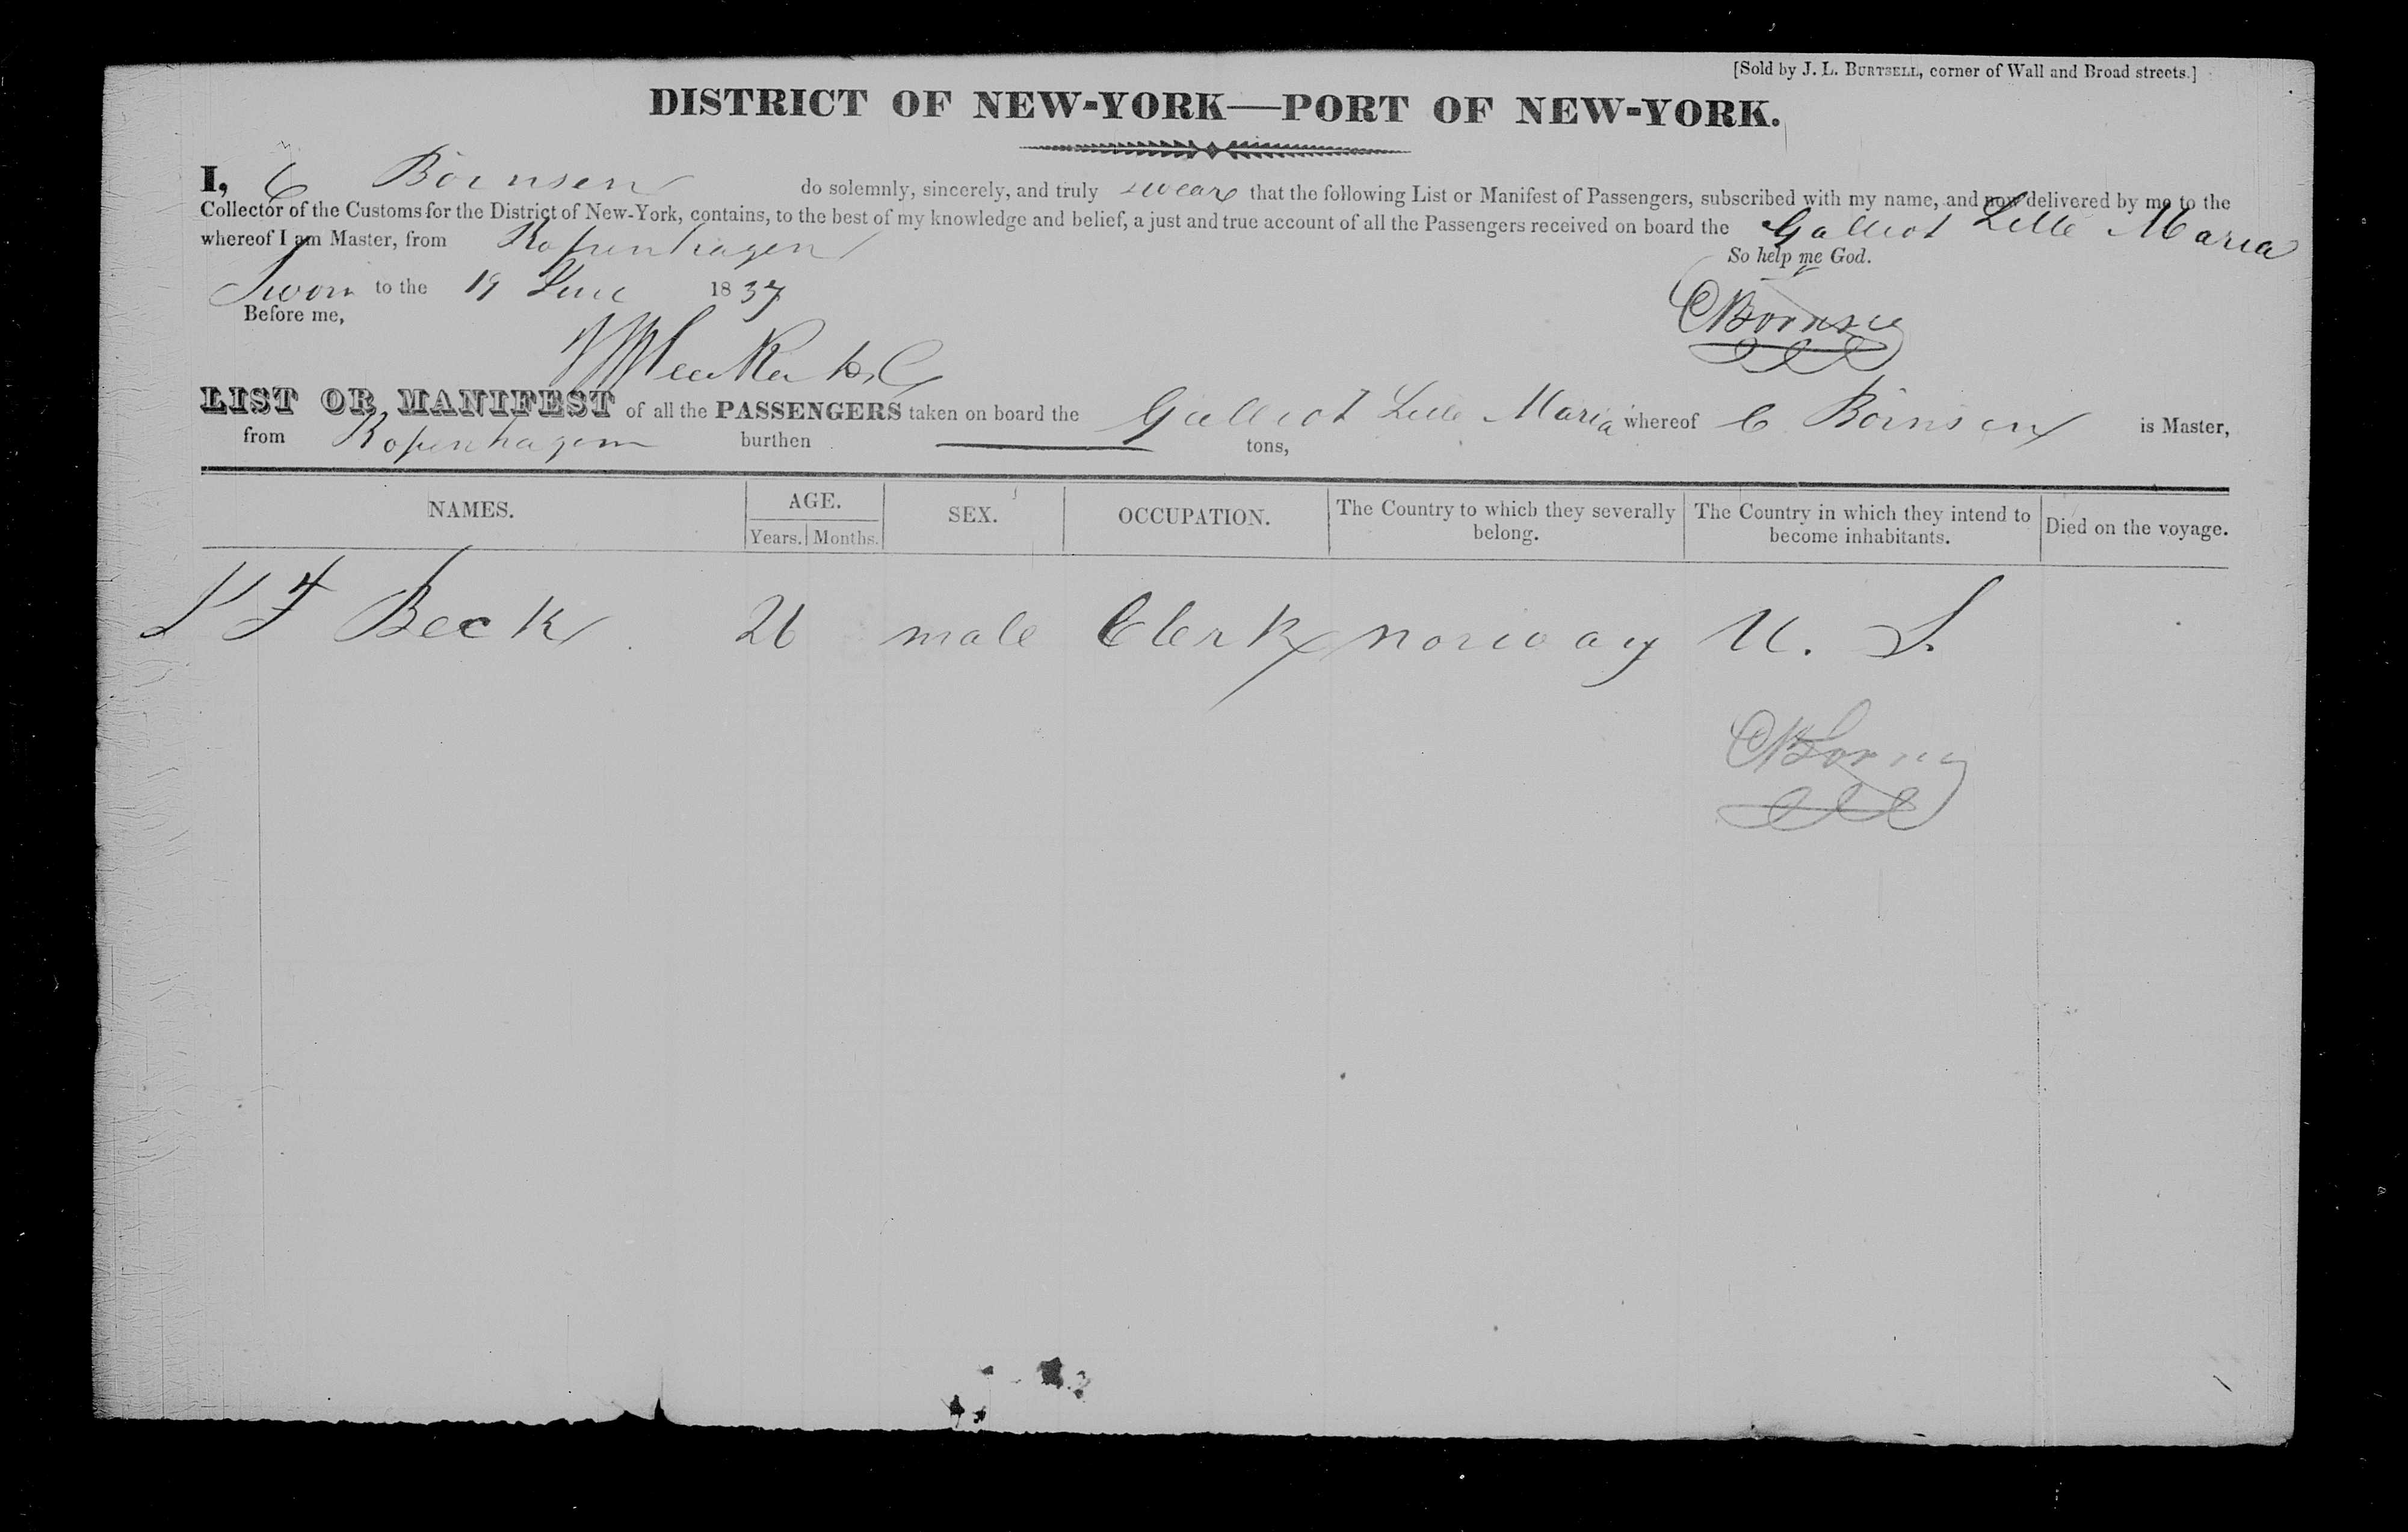 [Sold by J. L. BURTSELL, corner of Wall and Broad streets.]
DISTRICT OF NEW-YORK—PORT OF NEW-YORK.
I, C Boinsen do solemnly, sincerely, and truly swear that the following List or Manifest of Passengers, subscribed with my name, and now delivered by me to the
Collector of the Customs for the District of New-York, contains, to the best of my knowledge and belief, a just and true account of all the Passengers received on board the Galliot Lille Maria
whereof I am Master, from Kopenhagen
So help me God.
Sworn to the 19 June 1837
Before me,
LIST OR MANIFEST of all the PASSENGERS taken on board the Galliot Lille Maria whereof C Boinsen is Master,
from Kopenhagen burthen tons,
NAMES. AGE. Years. Months. SEX. OCCUPATION. The Country to which they severally belong. The Country in which they intend to become inhabitants. Died on the voyage.
Beck 26 male Clerk norway U. S.